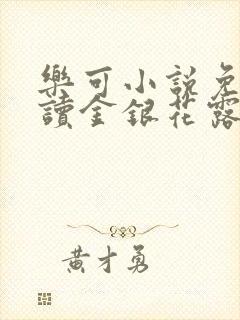 樂可小說免
讀金銀花露
黃才勇